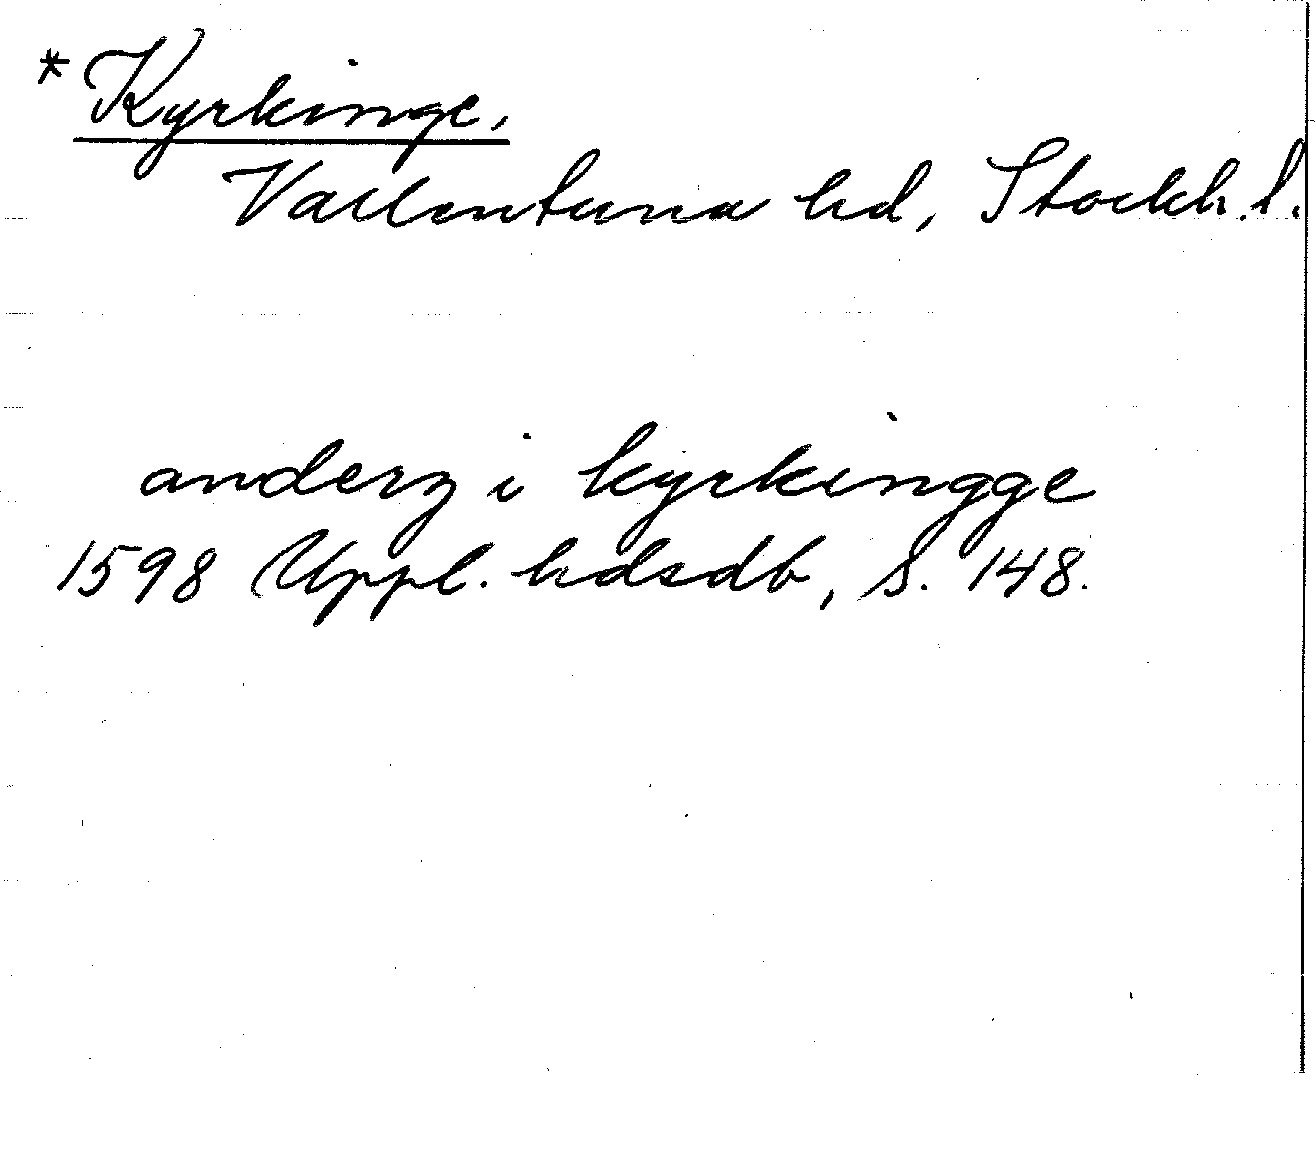 * Kyrkinge,
Vallentuna hd, Stockh. l.
anderz i kyrkingge
1598 Uppl. hdsdb, s. 148.